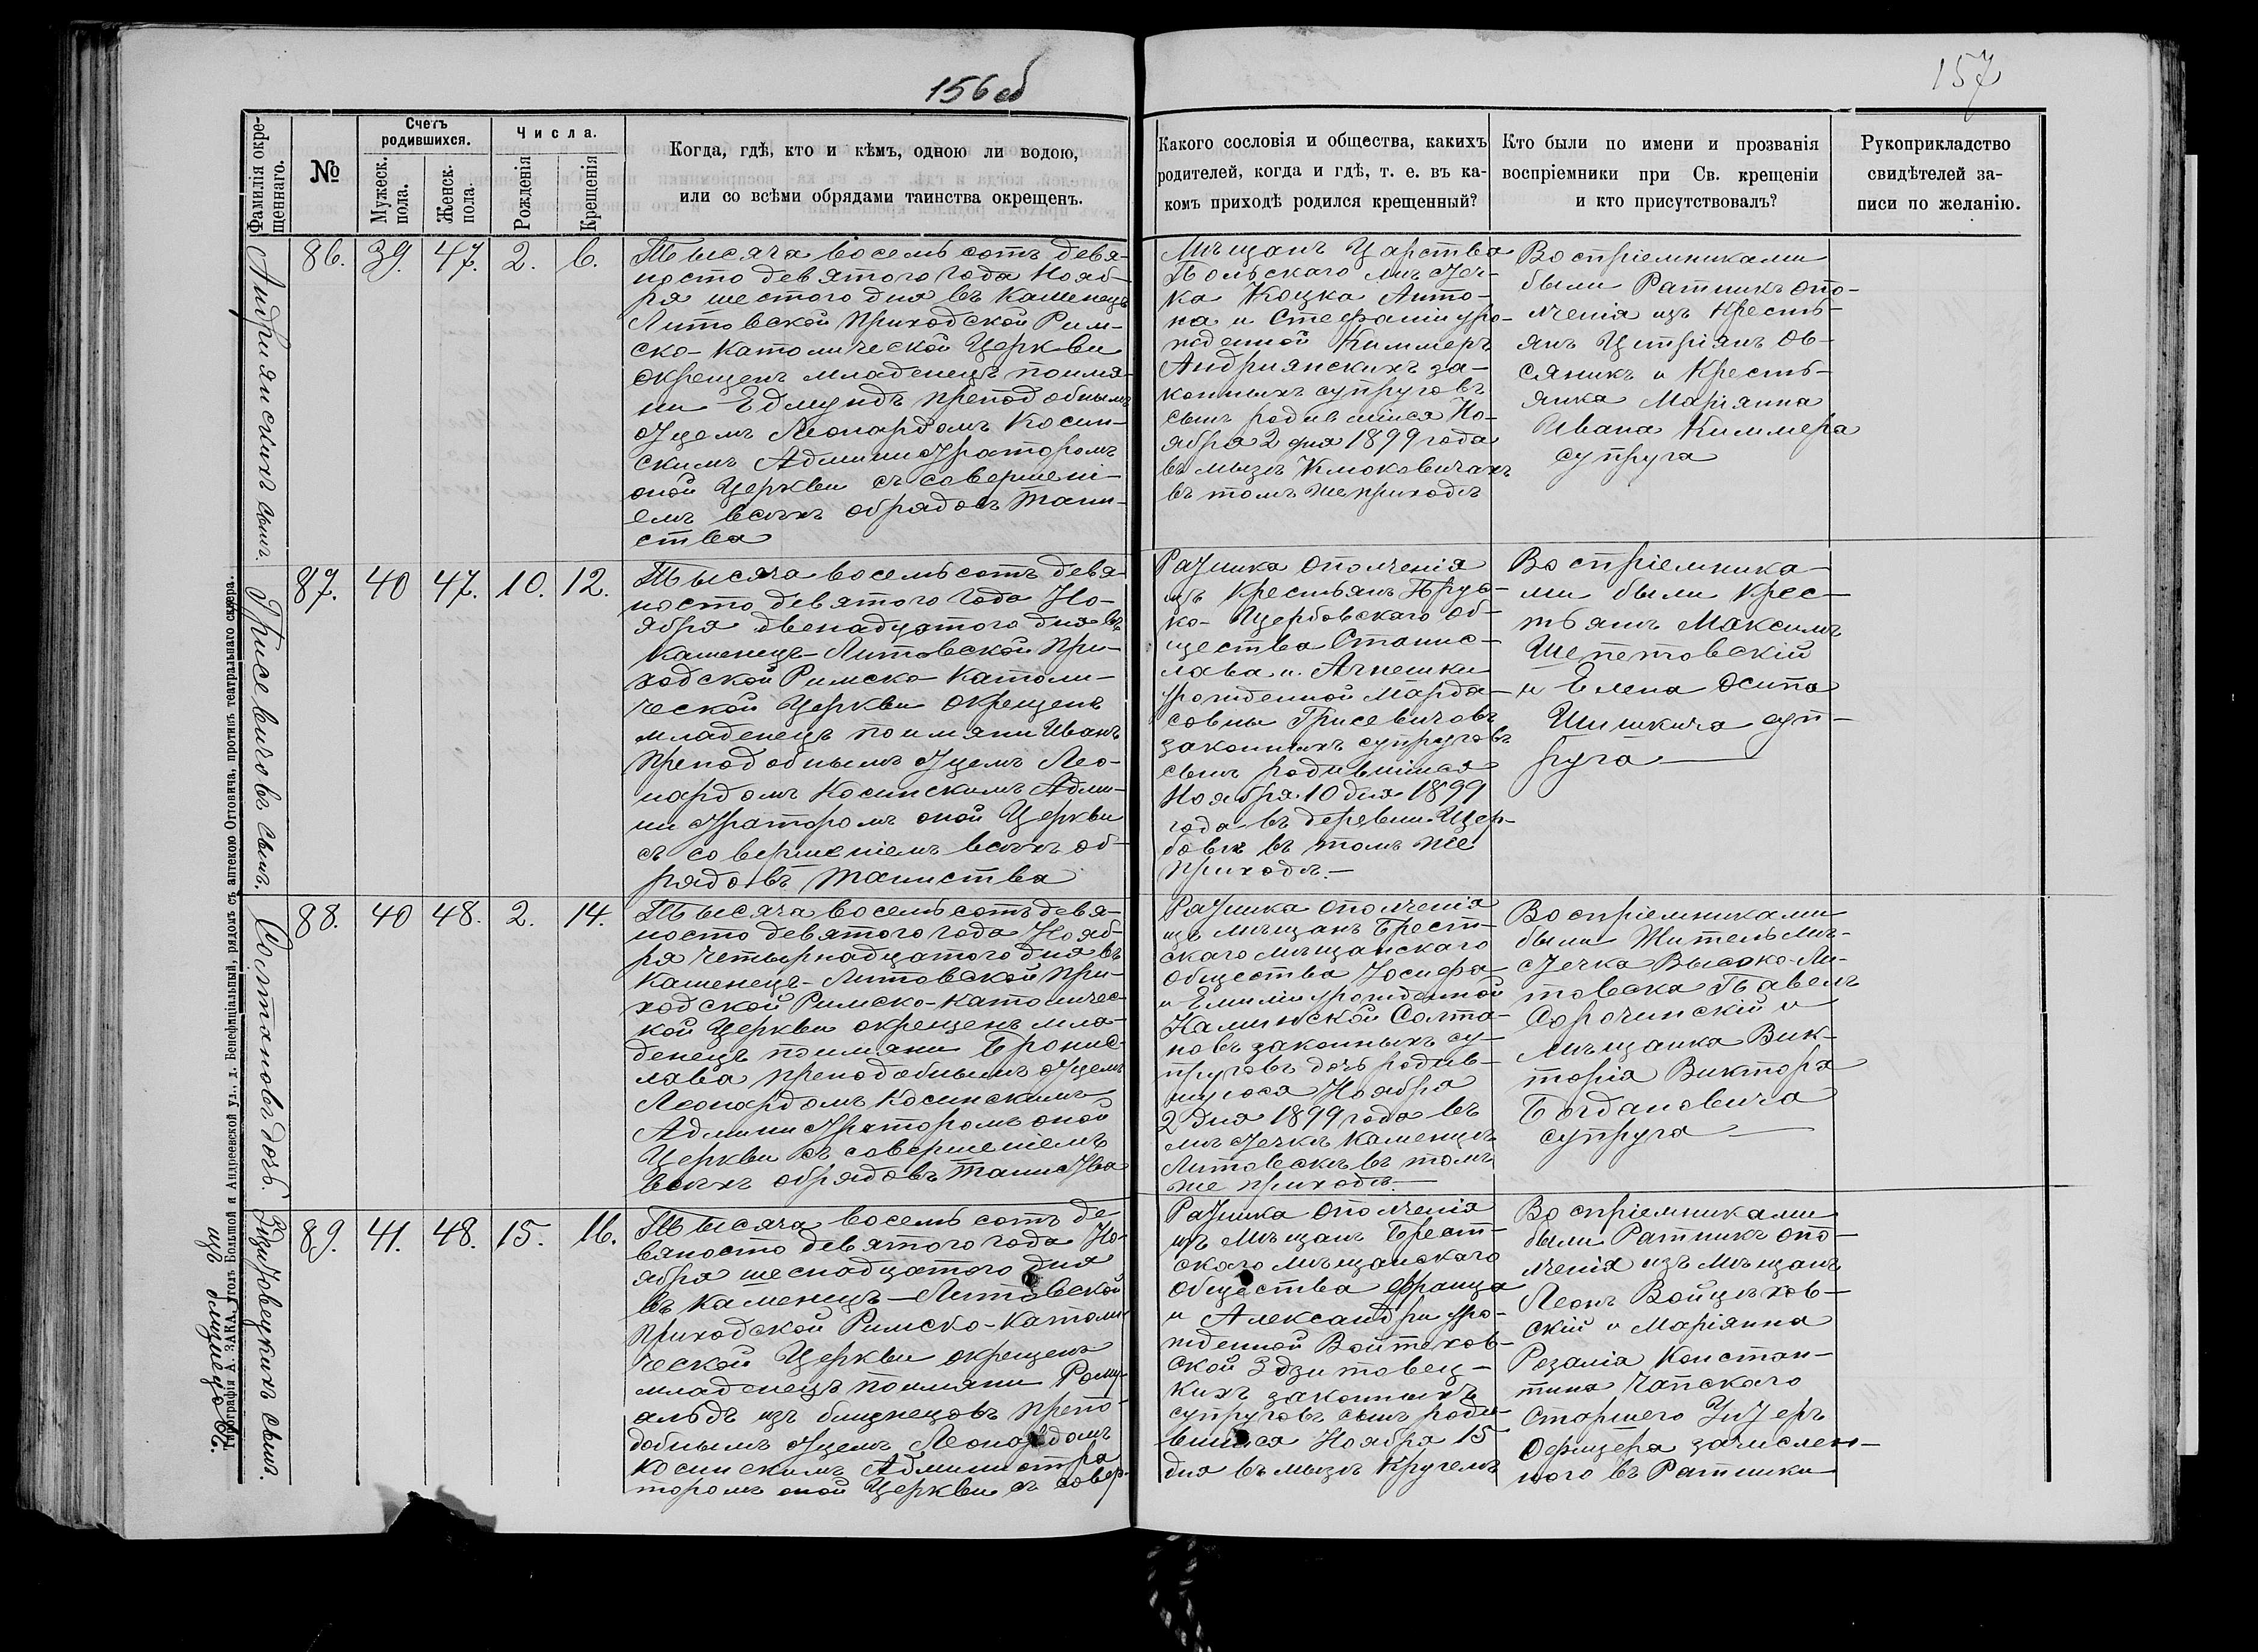 156 об
157
Фамилія окре-
щеннаго.
№
Счетъ
родившихся.
Мужеск.
пола.
Женск.
пола.
Числа.
Рожденія
Крещенія
Когда, гдѣ, кто и кѣмъ, одною ли водою,
или со всѣми обрядами таинства окрещенъ.
Какого сословія и общества, какихъ
родителей, когда и гдѣ, т. е. въ ка-
комъ приходѣ родился крещенный?
Кто были по имени и прозванія
воспріемники при Св. крещеніи
и кто присутствовалъ?
Рукоприкладство
свидѣтелей за-
писи по желанію.
Андріянскихъ сынъ.
86. 39. 47. 2. 6.
Тысяча восемь сотъ девя-
носто девятого года Нояб-
ря шестого дня въ Каменецъ
Литовской приходской Рим-
ско-Католической Церкви
окрещенъ младенецъ по имя-
ни Едмундъ преподобнымъ
Отцемъ Леонардомъ Косин-
скимъ Администраторомъ
оной Церкви съ совершені-
емъ всѣхъ обрядовъ таин-
ства
Мѣщанъ Царства
Польскаго мѣстеч-
ка Коцка Анто-
на и Стефаніи уро-
жденной Киммеръ
Андріянскихъ за-
конныхъ супруговъ
сынъ родившійся Но-
ября 2 дня 1899 года
въ мызѣ Клюковичахъ
въ томъ же приходѣ
Воспріемниками
были Ратникъ опо-
лченія изъ Кресть-
янъ Ципріянъ Ов-
сяникъ и Кресть-
янка Маріянна
Ивана Киммера
супруга
Грисевичовъ сынъ.
87. 40 47. 10. 12.
Тысяча восемь сотъ девя-
носто девятого года Но-
ября двенадцатого дня въ
Каменецъ-Литовской При-
ходской Римско-Католи-
ческой Церкви окрещенъ
младенецъ по имяни Иванъ
преподобнымъ Отцемъ Лео-
нардомъ Косинскимъ Адми-
нистраторомъ оной Церкви
съ совершеніемъ всѣхъ об-
рядовъ таинства
Ратника ополченія
изъ Крестьянъ
Щербовскаго об-
щества Станис-
лава и Агнешки
урожденной Марда-
совны Грисевичовъ
законныхъ супруговъ
сынъ родившійся
Ноября 10 дня 1899
года въ деревни Щер-
бовѣ въ томъ же
приходѣ.—
Воспріемника-
ми были Крес-
тьянъ Максимъ
Шепетовскій
и Елена Осипа
Шишкича суп-
руга —
Солтановъ дочь.
88. 40 48. 2. 14.
Тысяча восемь сотъ девя-
носто девятого года Нояб-
ря четырнадцатого дня въ
Каменецъ-Литовской При-
ходской Римско-Католичес-
кой Церкви окрещенъ мла-
денецъ по имяни Бронис-
лава преподобнымъ Отцемъ
Леонардомъ Косинскимъ
Администраторомъ оной
Церкви съ совершеніемъ
всѣхъ обрядовъ таинства
Ратника ополченія
изъ мѣщанъ Брест-
скаго мѣщанскаго
общества Іосифа
и Емиліи урожденной
Каминской Солта-
новъ законныхъ су-
пруговъ дочь родив-
шуюся Ноября
2 дня 1899 года въ
мѣстечкѣ Каменцѣ
Литовскѣ въ томъ
же приходѣ.—
Воспріемниками
были Житель мѣ-
стечка Высоко-Ли-
товска Павелъ
Сорочинскій и
мѣщанка Вик-
торія Виктора
Богдановича
супруга —
Здзитовецкихъ сынъ.
изъ близнецовъ.
89. 41. 48. 15. 16.
Тысяча восемь сотъ де-
вяносто девятого года Но-
ября шеснадцатого дня
въ Каменецъ-Литовской
Приходской Римско-Католи-
ческой Церкви окрещенъ
младенецъ по имяни Рому-
альдъ изъ близнецовъ препо-
добнымъ Отцемъ Леонардомъ
Косинскимъ Администра
торомъ оной Церкви съ совер-
Ратника ополченія
изъ Мѣщанъ Брест-
скаго мѣщанскаго
общества Франца
и Александры уро-
жденной Войтехов-
ской Здзитовец-
кихъ законныхъ
супруговъ сынъ роди-
вшійся Ноября 15
дня въ мызѣ Кругелъ
Воспріемниками
были Ратникъ опо-
лченія изъ мѣщанъ
Леонъ Войцѣхов-
скій и Маріянна
Розалія Констан-
тина Чапскаго
Старшего Унтеръ
Офицера зачислен-
ного въ Ратники
Типографія А. ЗАКА, уголъ Большой и Андреевской ул., д. Бенефиціальный, рядомъ съ аптекою Оттовича, противъ театральнаго сквера.